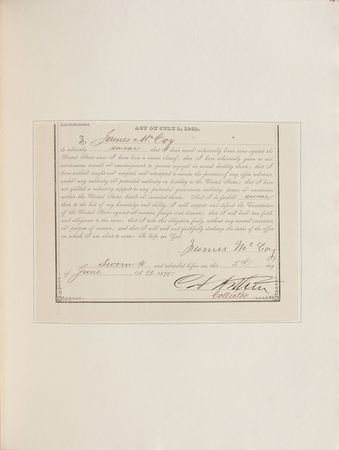 ACT OF JULY 2, 1862.
I, James McCoy
do solemnly swear that I have never voluntarily borne arms against the
United States since I have been a citizen thereof; that I have voluntarily given no aid,
countenance, counsel, or encouragement to persons engaged in armed hostility thereto; that I
have neither sought nor accepted, nor attempted to exercise the functions of any office whatever,
under any authority or pretended authority in hostility to the United States; that I have
not yielded a voluntary support to any pretended government, authority, power, or constitution
within the United States, hostile or inimical thereto. And I do further swear
that, to the best of my knowledge and ability, I will support and defend the Constitution
of the United States against all enemies, foreign and domestic; that I will bear true faith
and allegiance to the same; that I take this obligation freely, without any mental reservation
or purpose of evasion; and that I will well and faithfully discharge the duties of the office
on which I am about to enter: So help me God.
James McCoy
Sworn to and subscribed before me, this 5th day
of June A. D. 1875.
C A Arthur
Collector